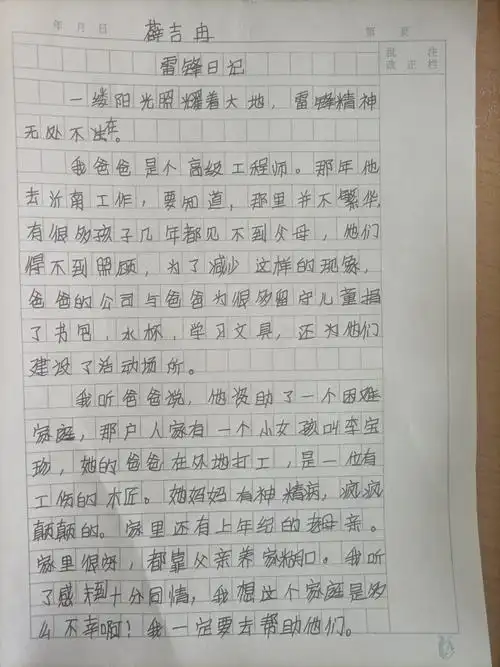 年 月 日 薛吉冉 第 页
批 注
改 正 栏
雷锋日记
一缕阳光照耀着大地，雷锋精神
无处不在。
我爸爸是个高级工程师。那年他
去沂南工作，要知道，那里并不繁华
有很多孩子几年都见不到父母，他们
得不到照顾，为了减少这样的现象，
爸爸的公司与爸爸为很多留守儿童捐
了书包，水杯，学习文具，还为他们
建设了活动场所。
我听爸爸说，他资助了一个困难
家庭，那户人家有一个小女孩叫李宝
珍，她的爸爸在外地打工，是一位有
工伤的木匠。她妈妈有神精病，疯疯
颠颠的。家里还有上年纪的老母亲。
家里很穷，都靠父亲养家糊口。我听
了感到十分同情，我想这个家庭是多
么不幸啊？我一定要去帮助他们。